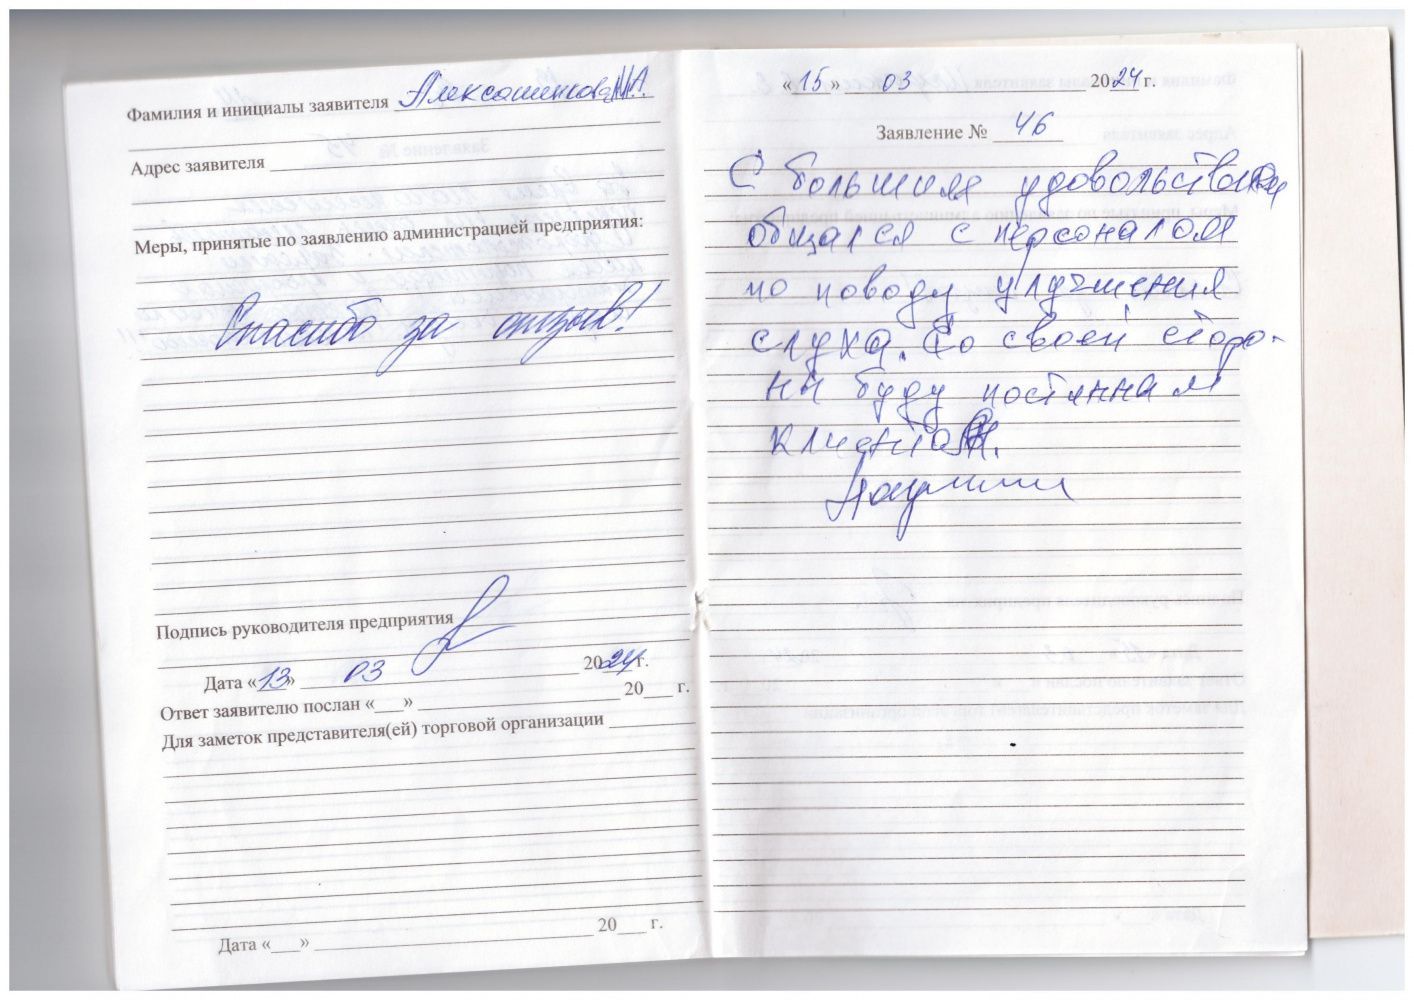 Фамилия и инициалы заявителя
Адрес заявителя
Меры, принятые по заявлению администрацией предприятия:
Спасибо за отзыв!
Подпись руководителя предприятия
Дата «13» 03 2024 г.
Ответ заявителю послан «___» 20___ г.
Для заметок представителя(ей) торговой организации
Дата «___» 20___ г.
«15» 03 2024 г.
Заявление № 46
С большим удовольствием
общался с персоналом
по поводу улучшения
слуха. Со своей сторо-
ны буду постяннам
клиентом.